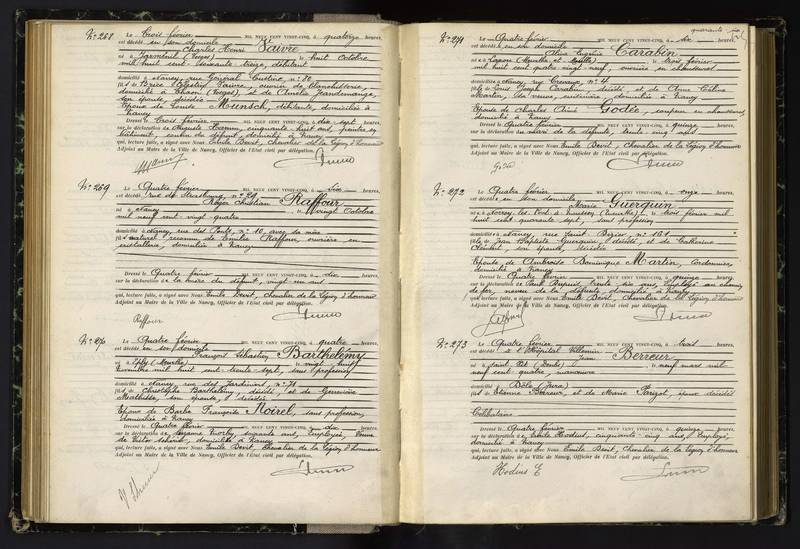 N° 268
Le Trois février MIL NEUF CENT VINGT-CINQ, à quatorze heures,
est décédé en son domicile
Charles Henri Faivre
né à Jarménil (Vosges) le huit Octobre
mil huit cent soixante treize, débitant
domicilié à Nancy, rue Général Fautrier n° 80
fils de
domicilié à Chaon (Vosges) et de Amélie Hardemange,
son épouse, décédée
Époux de Louise Muensch, débitante, domiciliée à
Nancy
Dressé le Trois février MIL NEUF CENT VINGT-CINQ, à dix sept heures,
sur la déclaration de Auguste Hamm, cinquante huit ans, peintre en
bâtiment, domicilié à Nancy
qui, lecture faite, a signé avec Nous Emile Devit, Chevalier de la Légion d'honneur
Adjoint au Maire de la Ville de Nancy, Officier de l'Etat civil par délégation.
N° 269
Le Quatre février MIL NEUF CENT VINGT-CINQ, à dix heures,
est décédé rue de Strasbourg n° 29
Roger Christian Raffour
né à Nancy le vingt Octobre
mil neuf cent vingt quatre
domicilié à Nancy, rue des Ponts, n° 10, avec sa mère
fils naturel reconnu de Emilie Raffour, ouvrière en
domiciliée à Nancy
Dressé le Quatre février MIL NEUF CENT VINGT-CINQ, à dix heures,
sur la déclaration de la mère du défunt, vingt un ans
qui, lecture faite, a signé avec Nous Emile Devit, Chevalier de la Légion d'honneur
Adjoint au Maire de la Ville de Nancy, Officier de l'Etat civil par délégation.
Raffour
N° 270
Le Quatre février MIL NEUF CENT VINGT-CINQ, à quatre heures,
est décédé en son domicile
François Sébastien Barthélemy
né à (Meurthe) le vingt huit
mil huit cent trente sept, sans profession
domicilié à Nancy, rue des Jardiniers, n° 71
fils de Christophe Barthélemy, décédé, et de Geneviève
Mathisse, son épouse, décédée
Époux de Barbe Françoise Noirel, sans profession,
domiciliée à Nancy
Dressé le Quatre février MIL NEUF CENT VINGT-CINQ, à dix heures,
sur la déclaration de soixante ans, employée, Veuve
de Victor domiciliée à Nancy
qui, lecture faite, a signé avec Nous Emile Devit, Chevalier de la Légion d'honneur
Adjoint au Maire de la Ville de Nancy, Officier de l'Etat civil par délégation.
quarante six
N° 271
Le Quatre février MIL NEUF CENT VINGT-CINQ, à dix heures,
est décédée en son domicile
Aline Eugénie Carabin
née à (Meurthe et Moselle) le trois février
mil huit cent quatre vingt neuf, ouvrière en chaussures
domiciliée à Nancy, rue Crevaux, n° 4
fille de Louis Joseph Carabin, décédé et de Anne Céline
Martin, sa veuve, domiciliée à Nancy
Épouse de Charles Aimé Godée, coupeur en chaussures,
domicilié à Nancy
Dressé le Quatre février MIL NEUF CENT VINGT-CINQ, à quinze heures,
sur la déclaration du mari de la défunte, trente cinq ans
qui, lecture faite, a signé avec Nous Emile Devit, Chevalier de la Légion d'honneur
Adjoint au Maire de la Ville de Nancy, Officier de l'Etat civil par délégation.
N° 272
Le Quatre février MIL NEUF CENT VINGT-CINQ, à onze heures,
est décédée en son domicile
Marie Guerquin
née à le trois février mil
huit cent quarante sept, sans profession
domiciliée à Nancy, rue Saint Dizier, n° 161
fille de Jean Baptiste Guerquin, décédé, et de Catherine
son épouse, décédée
Épouse de Ambroise Dominique Martin, cordonnier,
domicilié à Nancy
Dressé le Quatre février MIL NEUF CENT VINGT-CINQ, à quinze heures,
sur la déclaration de Paul Dupuid, trente six ans, employé au chemin
de fer, neveu de la défunte, domicilié à Nancy
qui, lecture faite, a signé avec Nous Emile Devit, Chevalier de la Légion d'honneur
Adjoint au Maire de la Ville de Nancy, Officier de l'Etat civil par délégation.
N° 273
Le Quatre février MIL NEUF CENT VINGT-CINQ, à trois heures,
est décédé à l'Hôpital Villemin
Jean Berreur
né à Saint Vit (Doubs) le neuf mars mil
neuf cent quatre, manœuvre
domicilié à Dôle (Jura)
fils de Etienne Berreur, et de Marie Parizot, époux décédés
Célibataire
Dressé le Quatre février MIL NEUF CENT VINGT-CINQ, à quinze heures,
sur la déclaration de Emile Hodius, cinquante cinq ans, employé,
domicilié à Nancy
qui, lecture faite, a signé avec Nous Emile Devit, Chevalier de la Légion d'honneur
Adjoint au Maire de la Ville de Nancy, Officier de l'Etat civil par délégation.
Hodius E